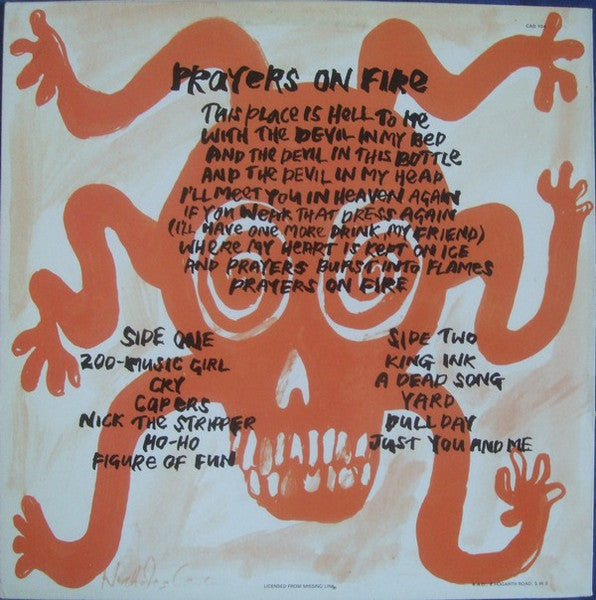 CAD 104
PRAYERS ON FIRE
THIS PLACE IS HELL TO ME
WITH THE DEVIL IN MY BED
AND THE DEVIL IN THIS BOTTLE
AND THE DEVIL IN MY HEAD
I'LL MEET YOU IN HEAVEN AGAIN
IF YOU WEAR THAT DRESS AGAIN
(I'LL HAVE ONE MORE DRINK MY FRIEND)
WHERE MY HEART IS KEPT ON ICE
AND PRAYERS BURST INTO FLAMES
PRAYERS ON FIRE
SIDE ONE
ZOO-MUSIC GIRL
CRY
CAPERS
NICK THE STRIPPER
HO-HO
FIGURE OF FUN
SIDE TWO
KING INK
A DEAD SONG
YARD
DULL DAY
JUST YOU AND ME
LICENSED FROM MISSING LINK
HOGARTH ROAD, S W 5